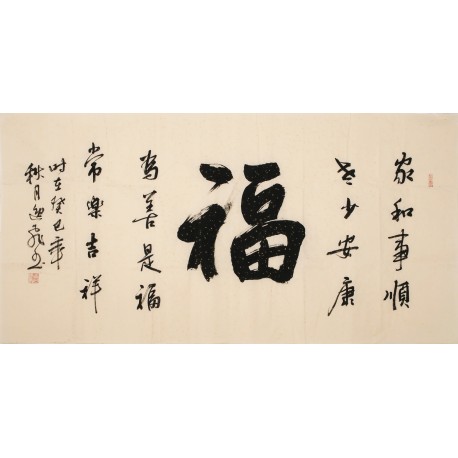 家和事順
老少安康
福
為善是福
常樂吉祥
時在癸巳年
秋月迎飛書